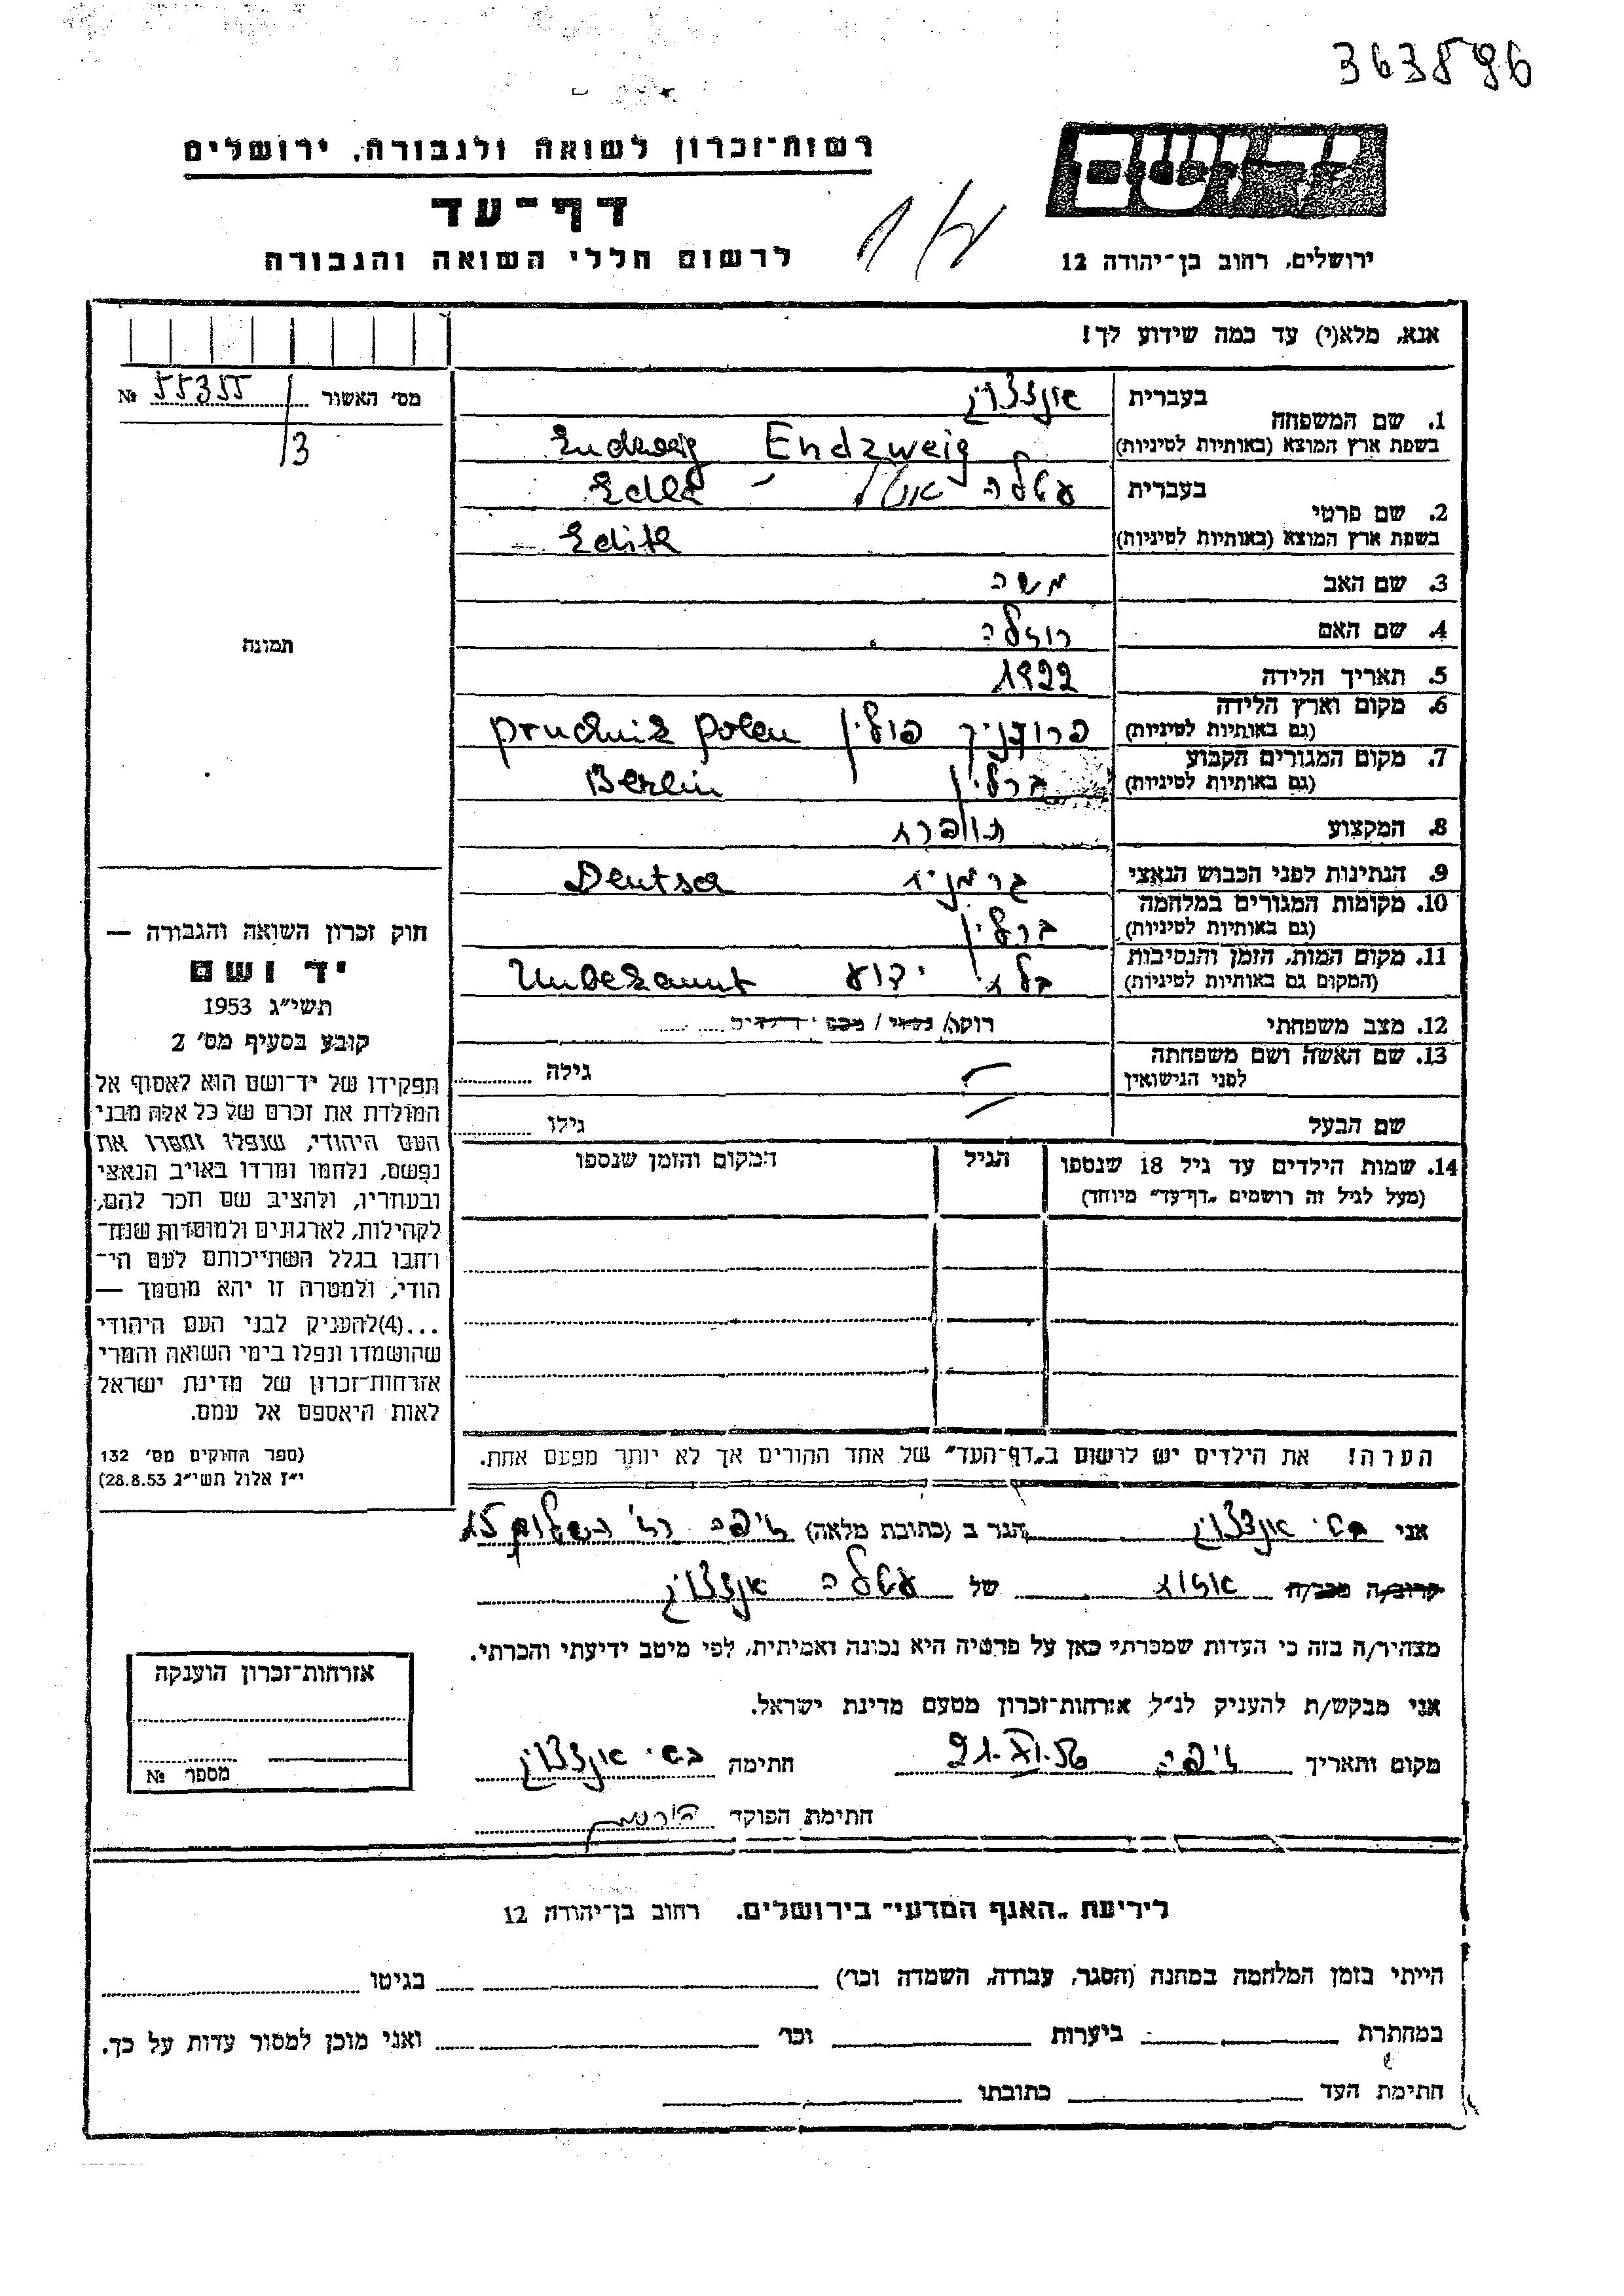 363896
רשות־זכרון לשואה ולגבורה, ירושלים
דף־עד
לרשום חללי השואה והגבורה
יד ושם
ירושלים, רחוב בן־יהודה 12
אנא, מלא(י) עד כמה שידוע לך!
מס' האשור 55355 №
3
תמונה
1. שם המשפחה
בעברית
בשפת ארץ המוצא (באותיות לטיניות) Endzweig
2. שם פרטי
בעברית עטלה
בשפת ארץ המוצא (באותיות לטיניות) Edith
3. שם האב משה
4. שם האם רוזלה
5. תאריך הלידה 1922
6. מקום וארץ הלידה
(גם באותיות לטיניות) פרודניק פולין prudnik polen
7. מקום המגורים הקבוע
(גם באותיות לטיניות) ברלין Berlin
8. המקצוע תופרת
9. הנתינות לפני הכבוש הנאצי גרמנית Deutsch
10. מקומות המגורים במלחמה
(גם באותיות לטיניות) ברלין
11. מקום המות, הזמן והנסיבות
(המקום גם באותיות לטיניות) בלתי ידוע Unbekannt
12. מצב משפחתי רוקה/ נשוי / מספר ילדים
13. שם האשה ושם משפחתה
לפני הנישואין
גילה
שם הבעל
גילו
14. שמות הילדים עד גיל 18 שנספו
(מעל לגיל זה רושמים „דף־עד" מיוחד)
הגיל
המקום והזמן שנספו
הערה! את הילדים יש לרשום ב„דף־העד" של אחד ההורים אך לא יותר מפעם אחת.
חוק זכרון השואה והגבורה —
יד ושם
תשי"ג 1953
קובע בסעיף מס' 2
תפקידו של יד־ושם הוא לאסוף אל
המולדת את זכרם של כל אלה מבני
העם היהודי, שנפלו ומסרו את
נפשם, נלחמו ומרדו באויב הנאצי
ובעוזריו, ולהציב שם וזכר להם,
לקהילות, לארגונים ולמוסדות שנח־
רחבו בגלל השתייכותם לעם הי־
הודי, ולמטרה זו יהא מוסמך —
...(4)להעניק לבני העם היהודי
שהושמדו ונפלו בימי השואה והמרי
אזרחות־זכרון של מדינת ישראל
לאות היאספם אל עמם.
(ספר החוקים מס' 132
י"ז אלול תשי"ג 28.8.53)
אני בתי אנדצווייג הגר ב (כתובת מלאה) חיפה רח' השלום 15
קרוב/ה מכר/ה אחות של עטלה אנדצווייג
מצהיר/ה בזה כי העדות שמסרתי כאן על פרטיה היא נכונה ואמיתית, לפי מיטב ידיעתי והכרתי.
אני מבקש/ת להעניק לנ"ל אזרחות־זכרון מטעם מדינת ישראל.
מקום ותאריך חיפה 21.XI.56 חתימה בתי אנדצווייג
חתימת הפוקד
אזרחות־זכרון הוענקה
מספר №
לידיעת „האגף המדעי" בירושלים. רחוב בן־יהודה 12
הייתי בזמן המלחמה במחנה (הסגר, עבודה, השמדה וכו') בגיטו
במחתרת ביערות וכו' ואני מוכן למסור עדות על כך.
חתימת העד כתובתו